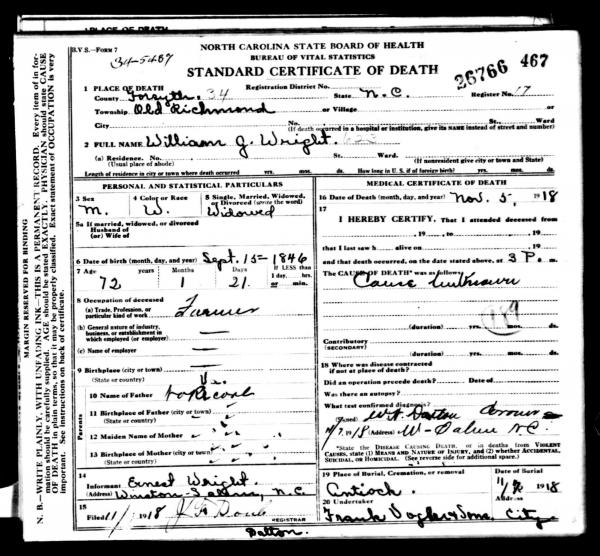 1 PLACE OF DEATH
R.V S.—FORM 7
34-5467
NORTH CAROLINA STATE BOARD OF HEALTH
BUREAU OF VITAL STATISTICS
STANDARD CERTIFICATE OF DEATH
26766 467
1 PLACE OF DEATH
County Forsyth. 34
Registration District No.
State N.C.
Register No. 17
Township Old Richmond
or Village
or
City
No.
St.
Ward
(If death occurred in a hospital or institution, give its NAME instead of street and number)
2 FULL NAME William J. Wright.
(a) Residence. No.
St.
Ward.
(Usual place of abode)
(If nonresident give city or town and State)
Length of residence in city or town where death occurred yrs. mos. ds.
How long in U. S. if of foreign birth? yrs. mos. ds.
PERSONAL AND STATISTICAL PARTICULARS
3 Sex
M.
4 Color or Race
W.
5 Single, Married, Widowed, or Divorced (write the word)
Widowed
5a If married, widowed, or divorced
Husband of
(or) Wife of
6 Date of birth (month, day, and year) Sept. 15-1846
7 Age
72 years
Months
1
Days
21
If LESS than
1 day, hrs.
or min.
8 Occupation of deceased
(a) Trade, Profession, or
particular kind of work
Farmer
(b) General nature of industry,
business, or establishment in
which employed (or employer)
(c) Name of employer
9 Birthplace (city or town)
(State or country)
10 Name of Father
11 Birthplace of Father (city or town)
(State or country)
12 Maiden Name of Mother
13 Birthplace of Mother (city or town)
(State or country)
Parents
14
Informant Ernest Wright.
(Address) Winston-Salem, N.C.
15
Filed 11/ 1918
REGISTRAR
Dalton.
MEDICAL CERTIFICATE OF DEATH
16 Date of Death (month, day, and year) Nov. 5, 1918
17
I HEREBY CERTIFY, That I attended deceased from
, 19 to , 19
that I last saw h alive on , 19
and that death occurred, on the date stated above, at 3 P. m.
The CAUSE OF DEATH* was as follows:
Cause Unknown
189
(duration) yrs. mos. ds.
Contributory
(SECONDARY)
(duration) yrs. mos. ds.
18 Where was disease contracted
if not at place of death?
Did an operation precede death? Date of
Was there an autopsy?
What test confirmed diagnosis?
(Signed) Coroner
1918 (Address) W-Salem N.C.
*State the DISEASE CAUSING DEATH, or in deaths from VIOLENT
CAUSES, state (1) MEANS AND NATURE OF INJURY, and (2) whether ACCIDENTAL,
SUICIDAL, or HOMICIDAL. (See reverse side for additional space.)
19 Place of Burial, Cremation, or removal
Antioch.
Date of Burial
1918
20 Undertaker
Address
Frank Vogler & Sons. City
MARGIN RESERVED FOR BINDING
N. B.—WRITE PLAINLY, WITH UNFADING INK—THIS IS A PERMANENT RECORD. Every item of information should be carefully supplied. AGE should be stated EXACTLY. PHYSICIAN should state CAUSE OF DEATH in plain terms, so that it may be properly classified. Exact statement of OCCUPATION is very important. See instructions on back of certificate.